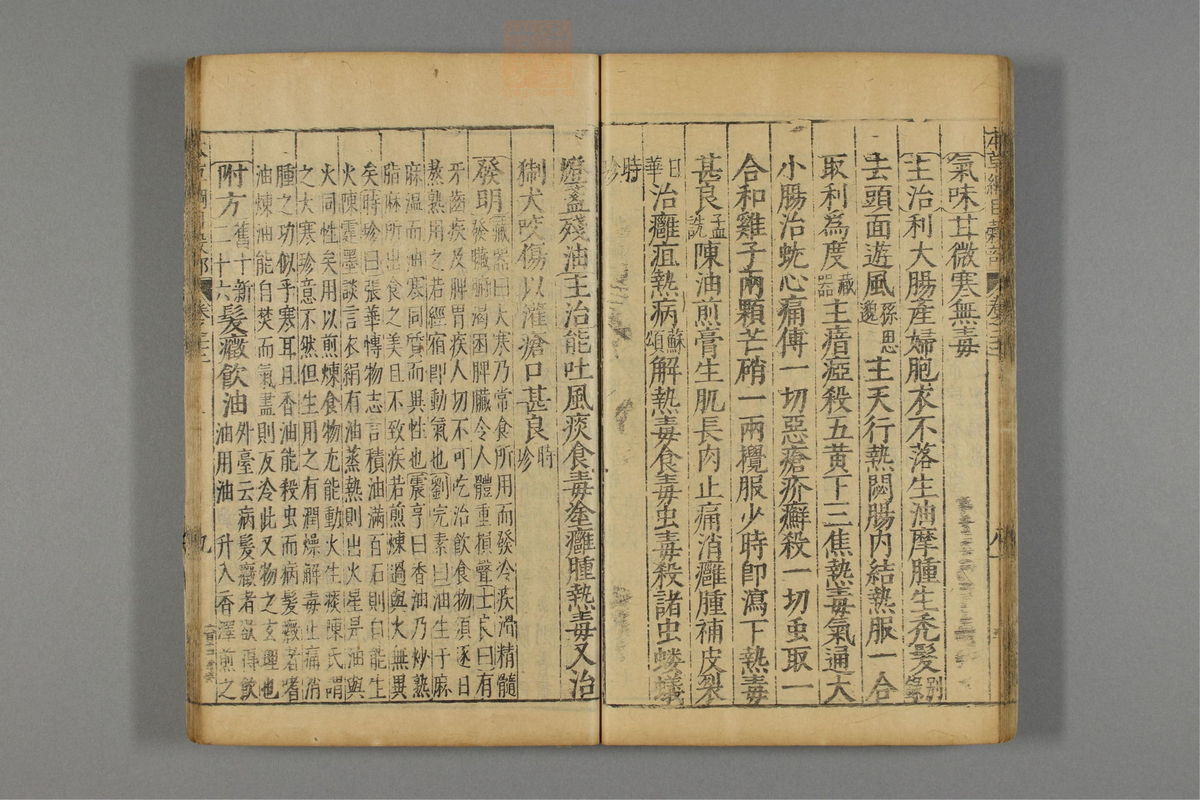 氣味甘微寒無毒
主治利大腸產婦胞衣不落生油摩腫生禿髮別錄
去頭面遊風孫思邈主天行熱閟腸內結熱服一合
取利為度藏器主瘖瘂殺五黃下三焦熱毒氣通大
小腸治蚘心痛傅一切惡瘡疥癬殺一切虫取一
合和雞子兩顆芒硝一兩攪服少時即瀉下熱毒
甚良孟詵陳油煎膏生肌長肉止痛消癰腫補皮裂
日華治癰疽熱病蘇頌解熱毒食毒虫毒殺諸虫螻蟻
時珍
燈盞殘油主治能吐風痰食毒塗癰腫熱毒又治
猘犬咬傷以灌瘡口甚良時珍
發明藏器曰大寒乃常食所用而發冷疾滑精髓
發臟腑渴困脾臟令人體重損聲士良曰有
牙齒疾及脾胃疾人切不可吃治飲食物須逐日
熬熟用之若經宿即動氣也劉完素曰油生于麻
麻溫而油寒同質而異性也震亨曰香油乃炒熟
脂麻所出食之美且不致疾若煎煉過與火無異
矣時珍曰張華博物志言積油滿百石則自能生
火陳霆墨談言衣絹有油蒸熱則出火星是油與
火同性矣用以煎煉食物尤能動火生痰陳氏謂
之大寒珍意不然但生用之有潤燥解毒止痛消
腫之功似乎寒耳且香油能殺虫而病髮癥者嗜
油煉油能自焚而氣盡則反冷此又物之玄理也
附方舊十新二十六髮癥飲油外臺云病髮癥者欲得飲
油用油一升入香澤煎之